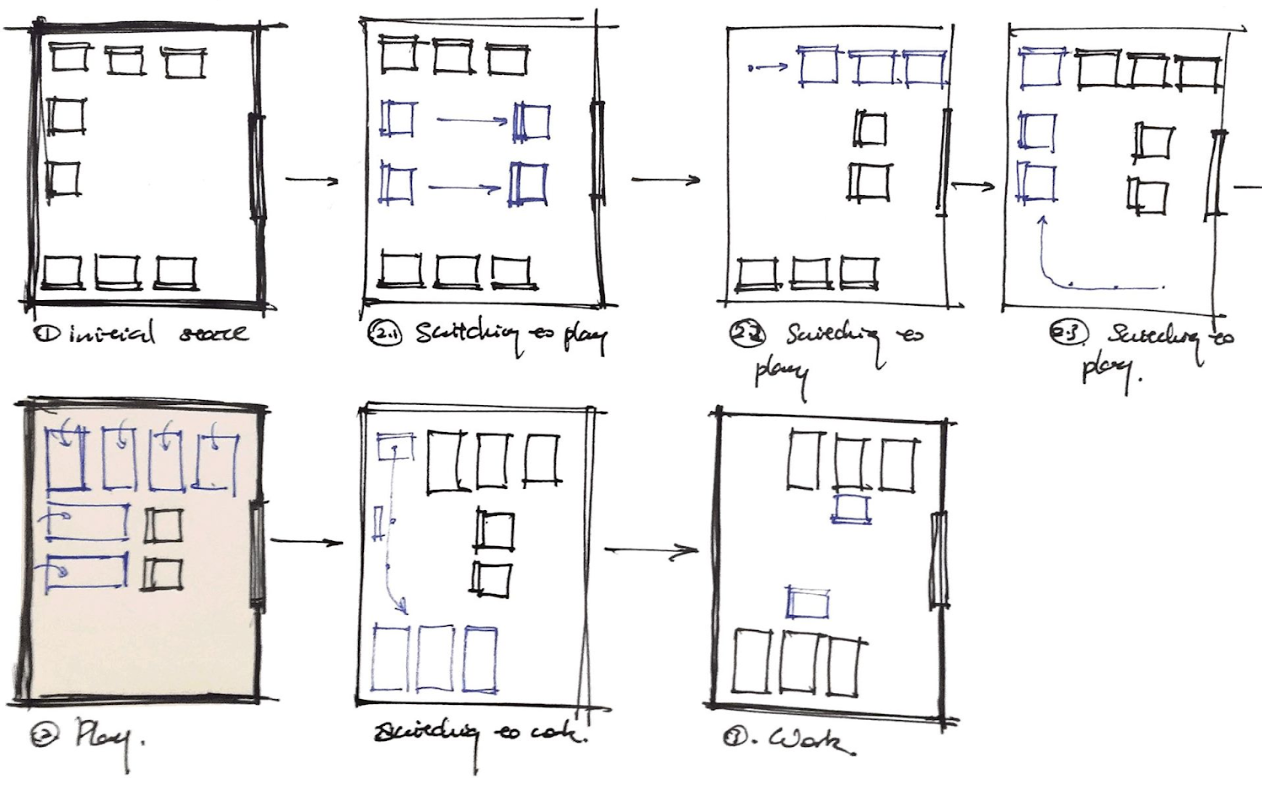 ① Initial state
②.1 Switching to play
②.2 Switching to
play
②.3. Switching to
play.
② Play.
Switching to work.
③. Work.